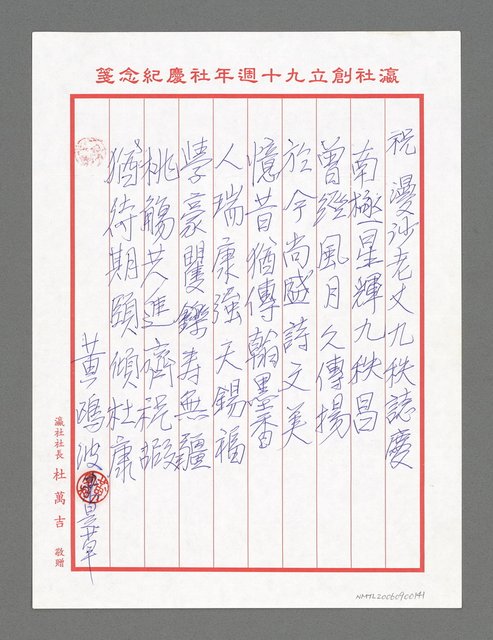 瀛社創立九十週年社慶紀念箋
祝 漫沙老丈九秩誌慶
南極星輝九秩昌
曾經風月久傳揚
於今尚盛詩文美
憶昔猶傳翰墨香
人瑞康強天錫福
學豪矍鑠壽無疆
桃觴共進齊祝嘏
猶待期頤傾杜康
黃鳴波 草
瀛社社長 杜萬吉 敬贈
NMTL20060900141